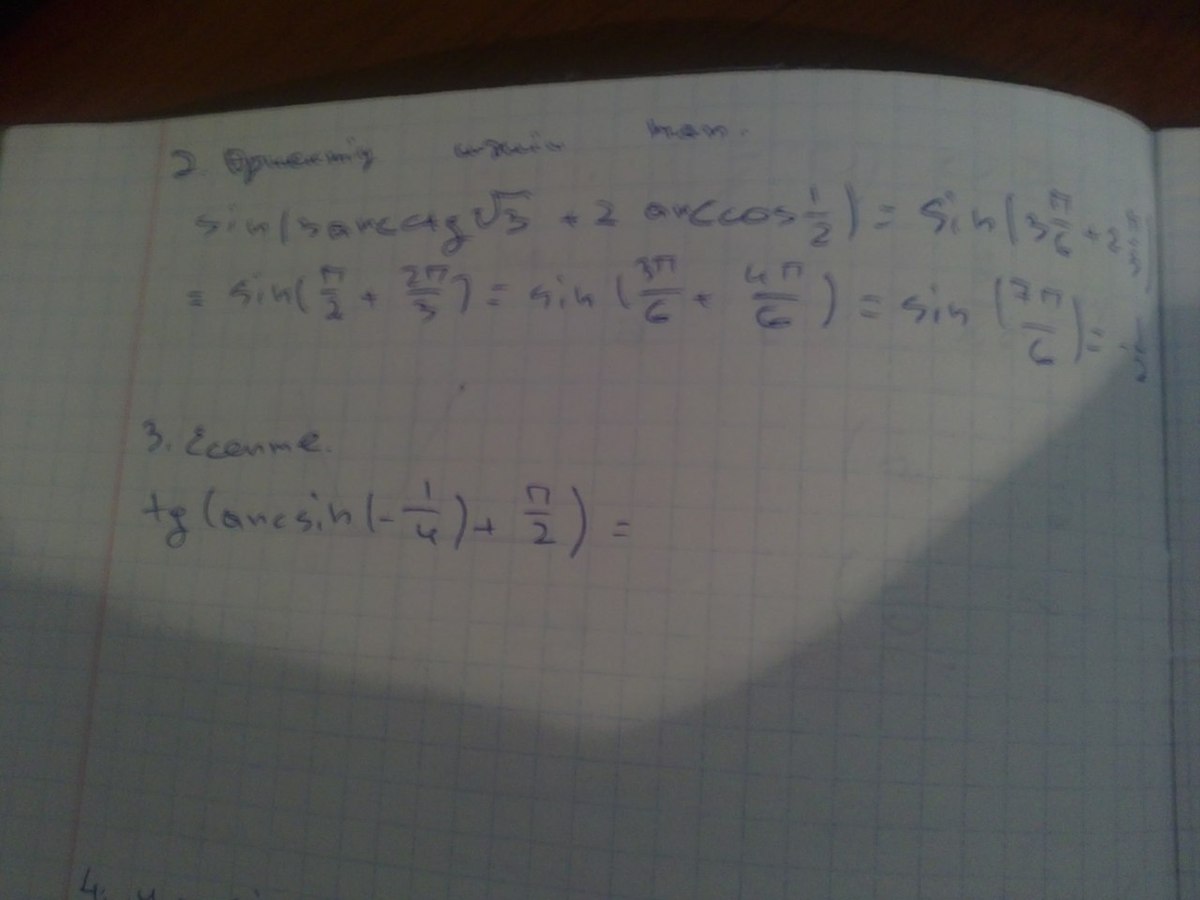 2. Өрнектің мәнін тап.
sin(3arcctg√3 + 2 arccos 1/2) = sin(3 π/6 + 2 π/3
= sin(π/2 + 2π/3) = sin(3π/6 + 4π/6) = sin(7π/6) =
3. Есепте.
tg(arcsin(-1/4) + π/2) =
4.